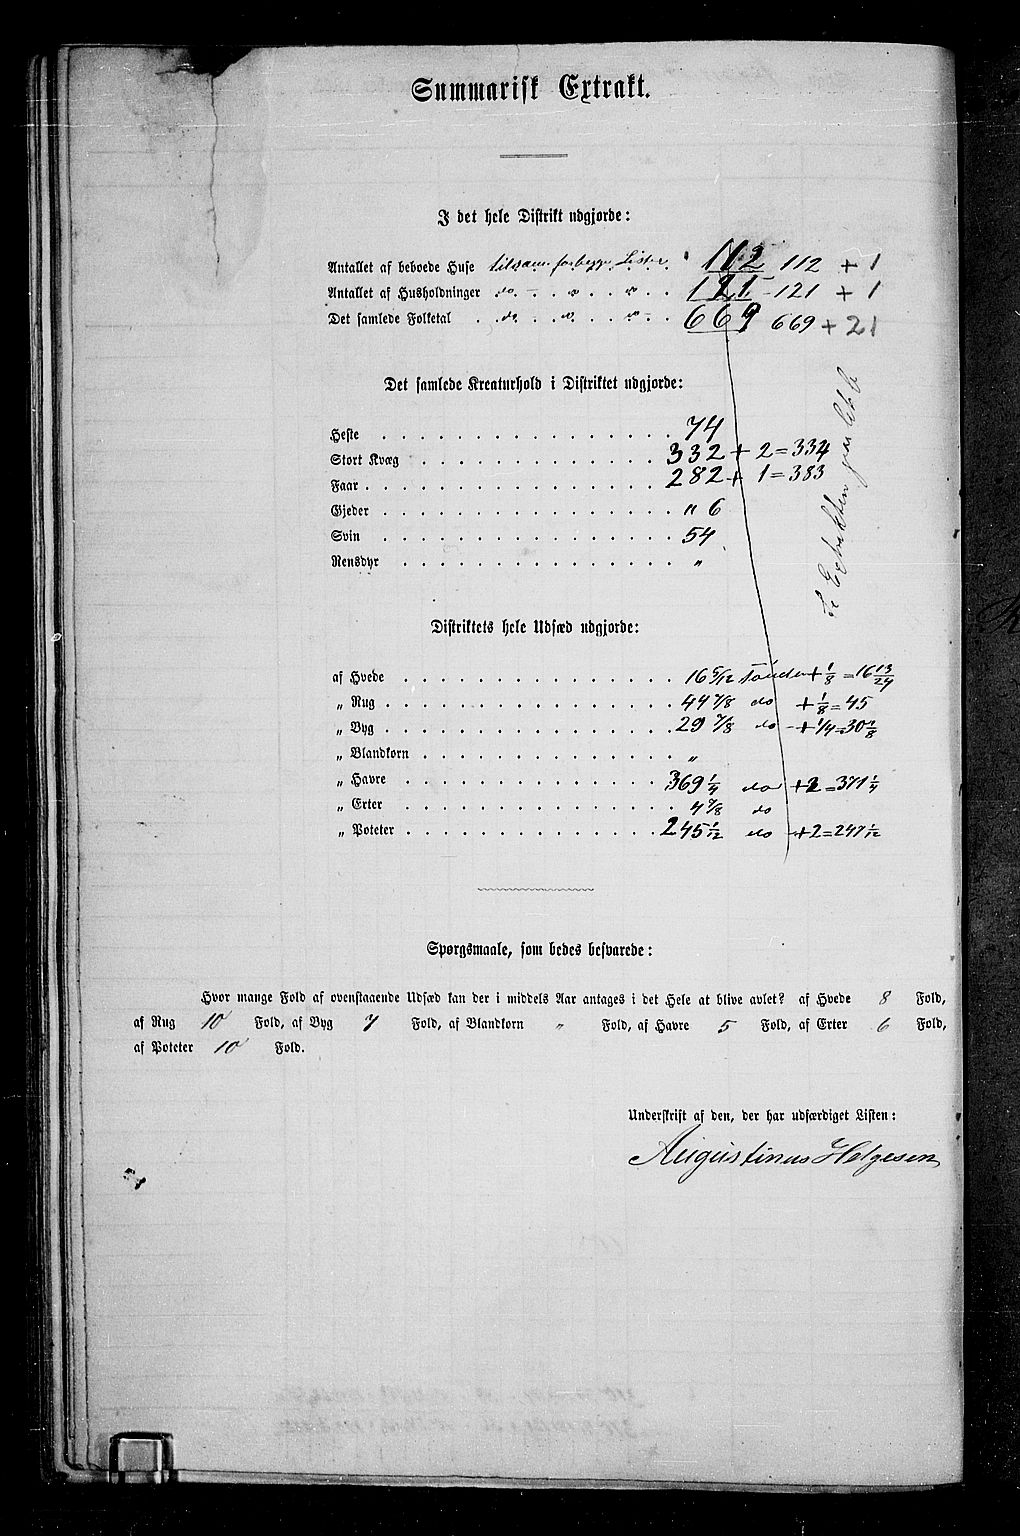 Summarisk Extrakt.
I det hele Distrikt udgjorde:
Antallet af beboede Huse tilsam. for begge Lister 112 112 + 1
Antallet af Husholdninger do – " " 121 – 121 + 1
Det samlede Folketal do. " " 669 669 + 21
Det samlede Kreaturhold i Distriktet udgjorde:
Heste 74
Stort Kvæg 332 + 2 = 334
Faar 282 + 1 = 383
Gjeder " 6
Svin 54
Rensdyr "
Distriktets hele Udsæd udgjorde:
af Hvede 16 5/12 Tønder + 1/8 = 16 13/24
„ Rug 44 7/8 do + 1/8 = 45
„ Byg 29 7/8 do + 1/4 = 30 1/8
„ Blandkorn "
„ Havre 369 1/4 do + 2 = 371 1/4
„ Erter 4 7/8 do
„ Poteter 245 1/12 do + 2 = 247 1/12
Se Extrakten
Spørgsmaale, som bedes besvarede:
Hvor mange Fold af ovenstaaende Udsæd kan der i middels Aar antages i det Hele at blive avlet? af Hvede 8 Fold,
af Rug 10 Fold, af Byg 7 Fold, af Blandkorn " Fold, af Havre 5 Fold, af Erter 6 Fold,
af Poteter 10 Fold.
Underskrift af den, der har udfærdiget Listen:
Augustinus Helgesen